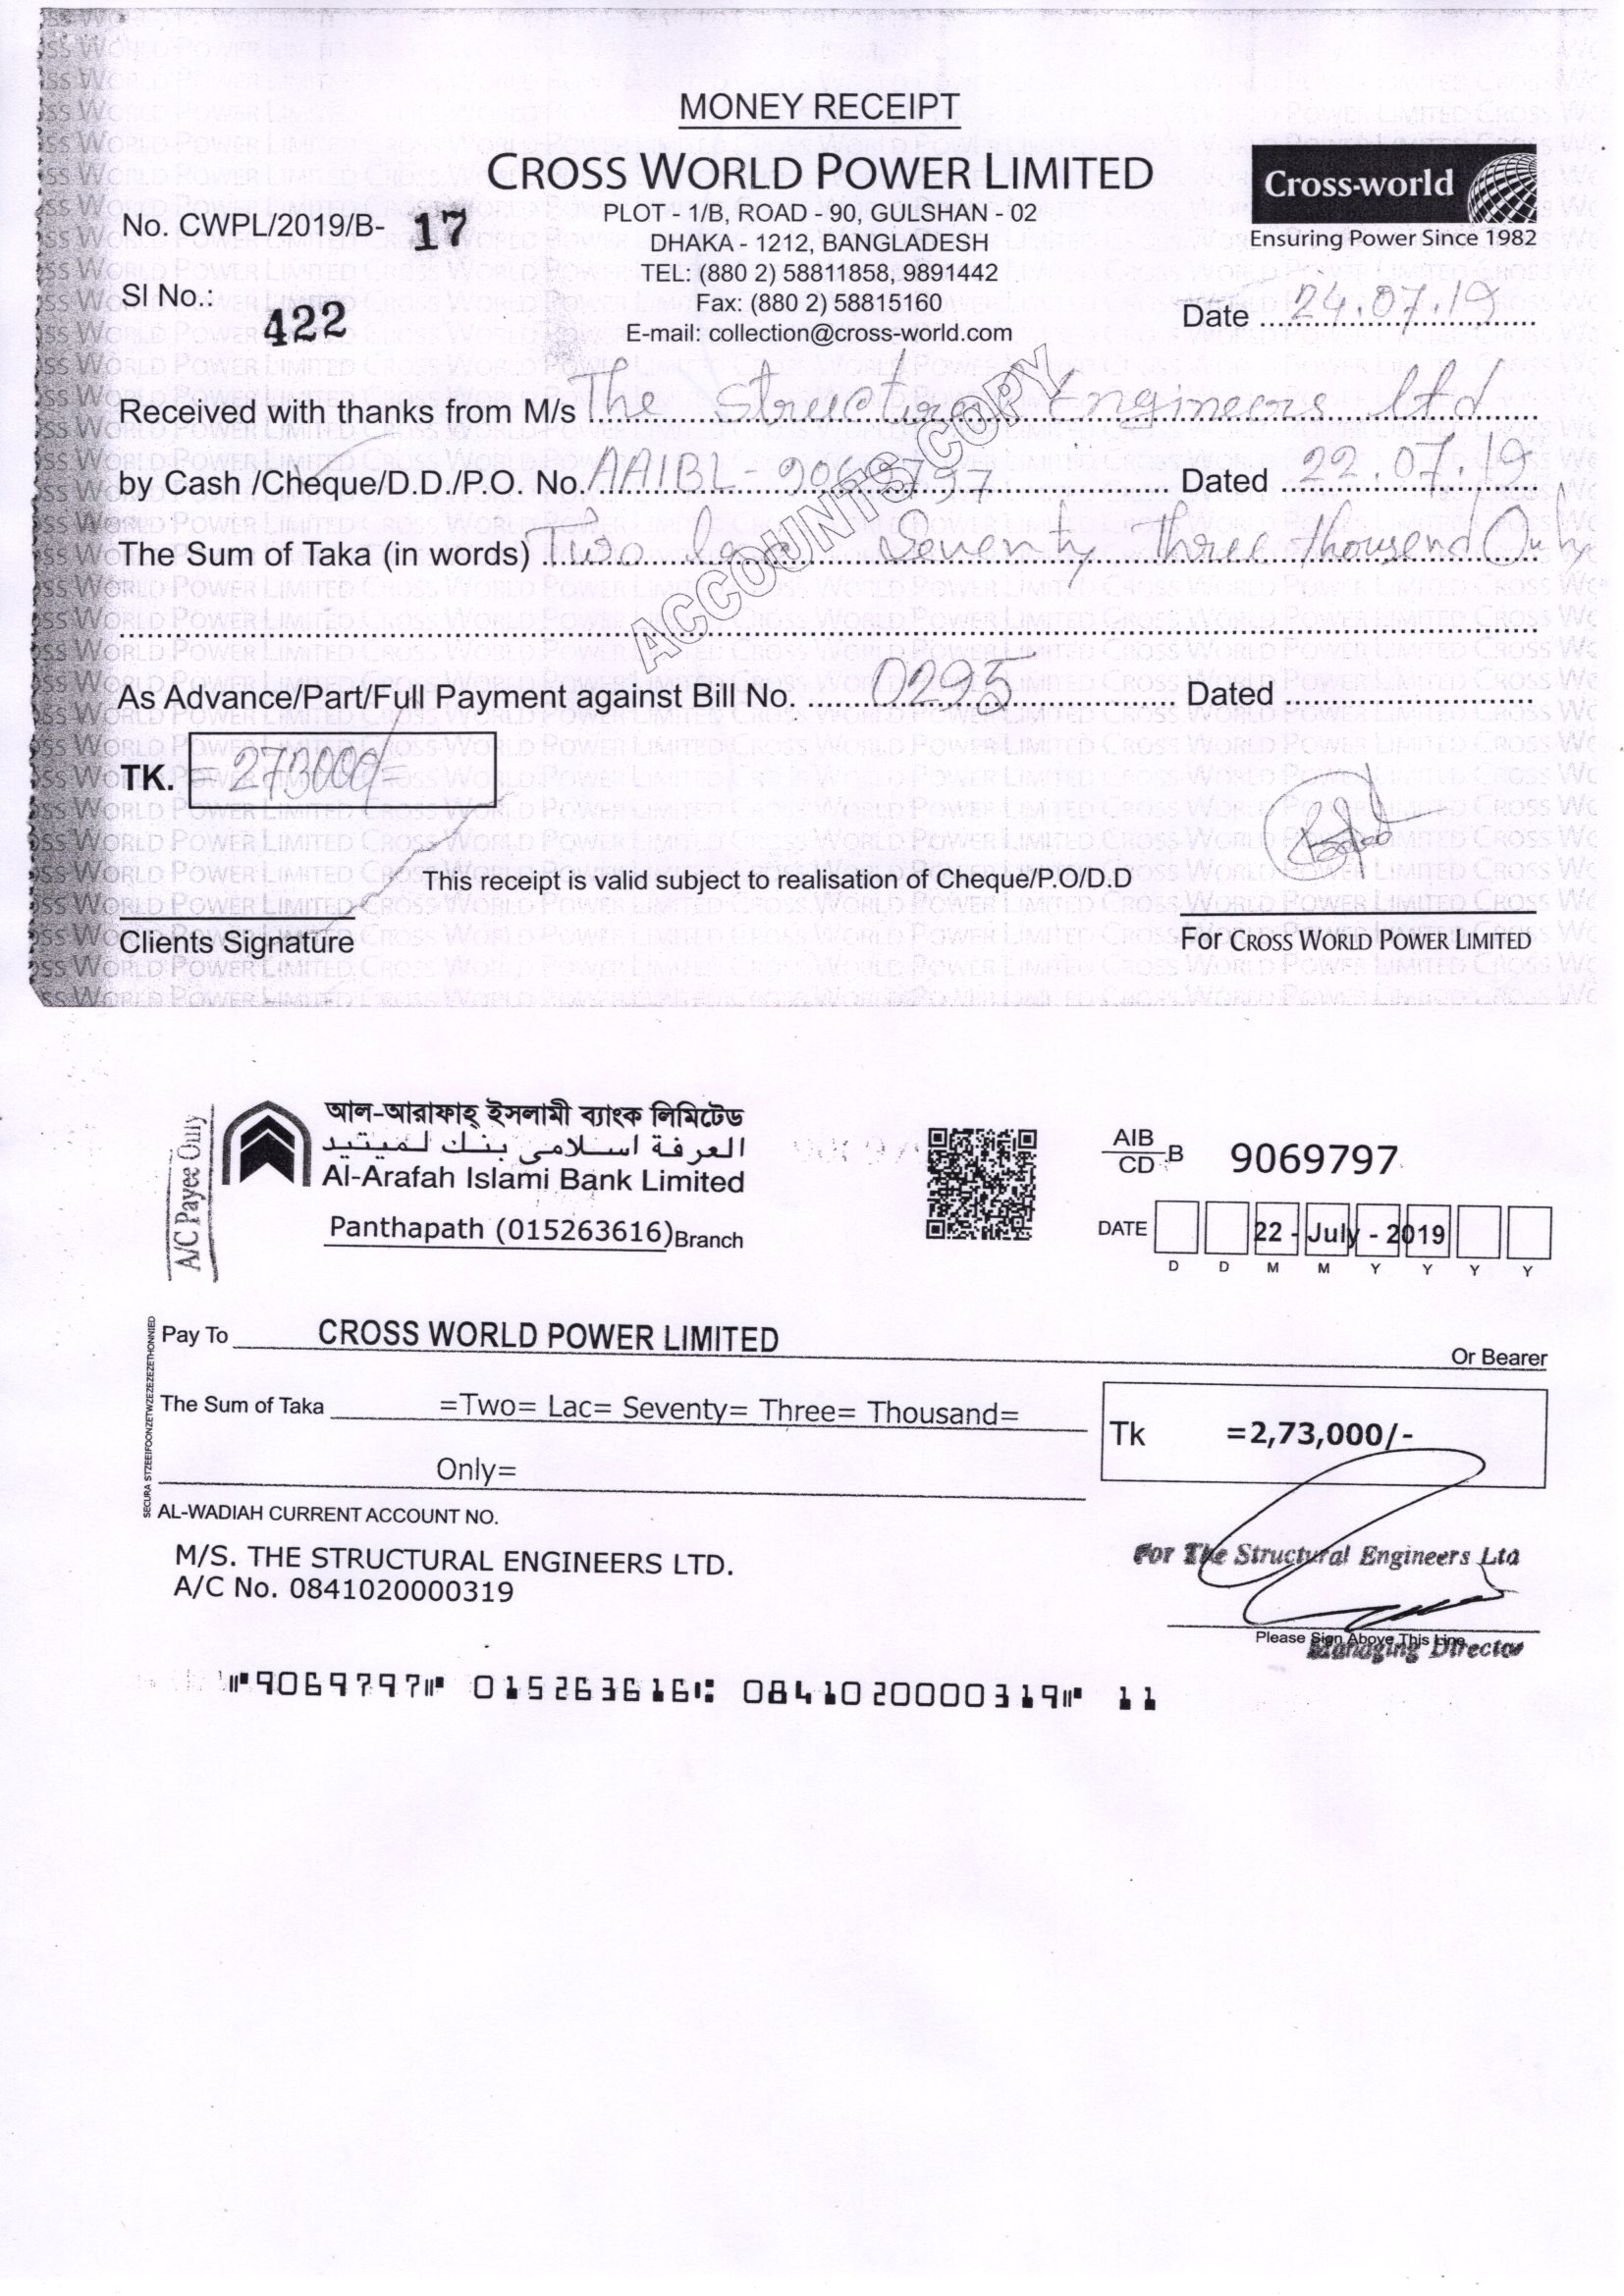 MONEY RECEIPT
CROSS WORLD POWER LIMITED
Cross-world
Ensuring Power Since 1982
No. CWPL/2019/B- 17
PLOT - 1/B, ROAD - 90, GULSHAN - 02
DHAKA - 1212, BANGLADESH
TEL: (880 2) 58811858, 9891442
Sl No.: 422
Fax: (880 2) 58815160
E-mail: collection@cross-world.com
Date 24.07.19
Received with thanks from M/s The Structural Engineers ltd
by Cash /Cheque/D.D./P.O. No. AAIBL - 9069797 Dated 22.07.19
The Sum of Taka (in words) Two lac Seventy Three thousend Only
ACCOUNTS COPY
As Advance/Part/Full Payment against Bill No. 0295 Dated
TK. =273000/=
This receipt is valid subject to realisation of Cheque/P.O/D.D
Clients Signature
For CROSS WORLD POWER LIMITED
A/C Payee Only
আল-আরাফাহ্ ইসলামী ব্যাংক লিমিটেড
العرفة اسلامى بنك لميتيد
Al-Arafah Islami Bank Limited
Panthapath (015263616) Branch
AIB
CD B 9069797
DATE 22 - July - 2019
D D M M Y Y Y Y
Pay To CROSS WORLD POWER LIMITED
Or Bearer
The Sum of Taka =Two= Lac= Seventy= Three= Thousand=
Only=
Tk =2,73,000/-
AL-WADIAH CURRENT ACCOUNT NO.
M/S. THE STRUCTURAL ENGINEERS LTD.
A/C No. 0841020000319
For The Structural Engineers Ltd
Please Sign Above This Line
Managing Director
⑈9069797⑈ 015263616⑆ 0841020000319⑈ 11